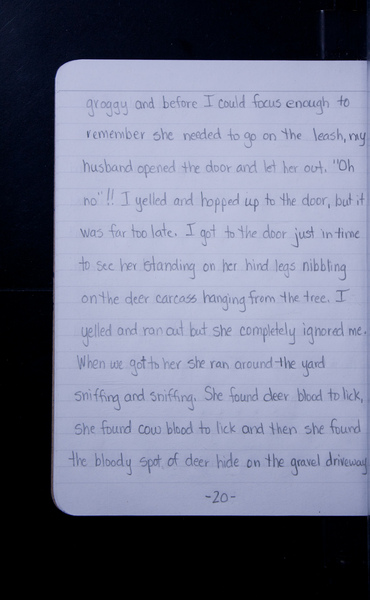 groggy and before I could focus enough to
remember she needed to go on the leash, my
husband opened the door and let her out. "Oh
no"!! I yelled and hopped up to the door, but it
was far too late. I got to the door just in time
to see her standing on her hind legs nibbling
on the deer carcass hanging from the tree. I
yelled and ran out but she completely ignored me.
When we got to her she ran around the yard
sniffing and sniffing. She found deer blood to lick,
she found cow blood to lick and then she found
the bloody spot of deer hide on the gravel driveway
-20-